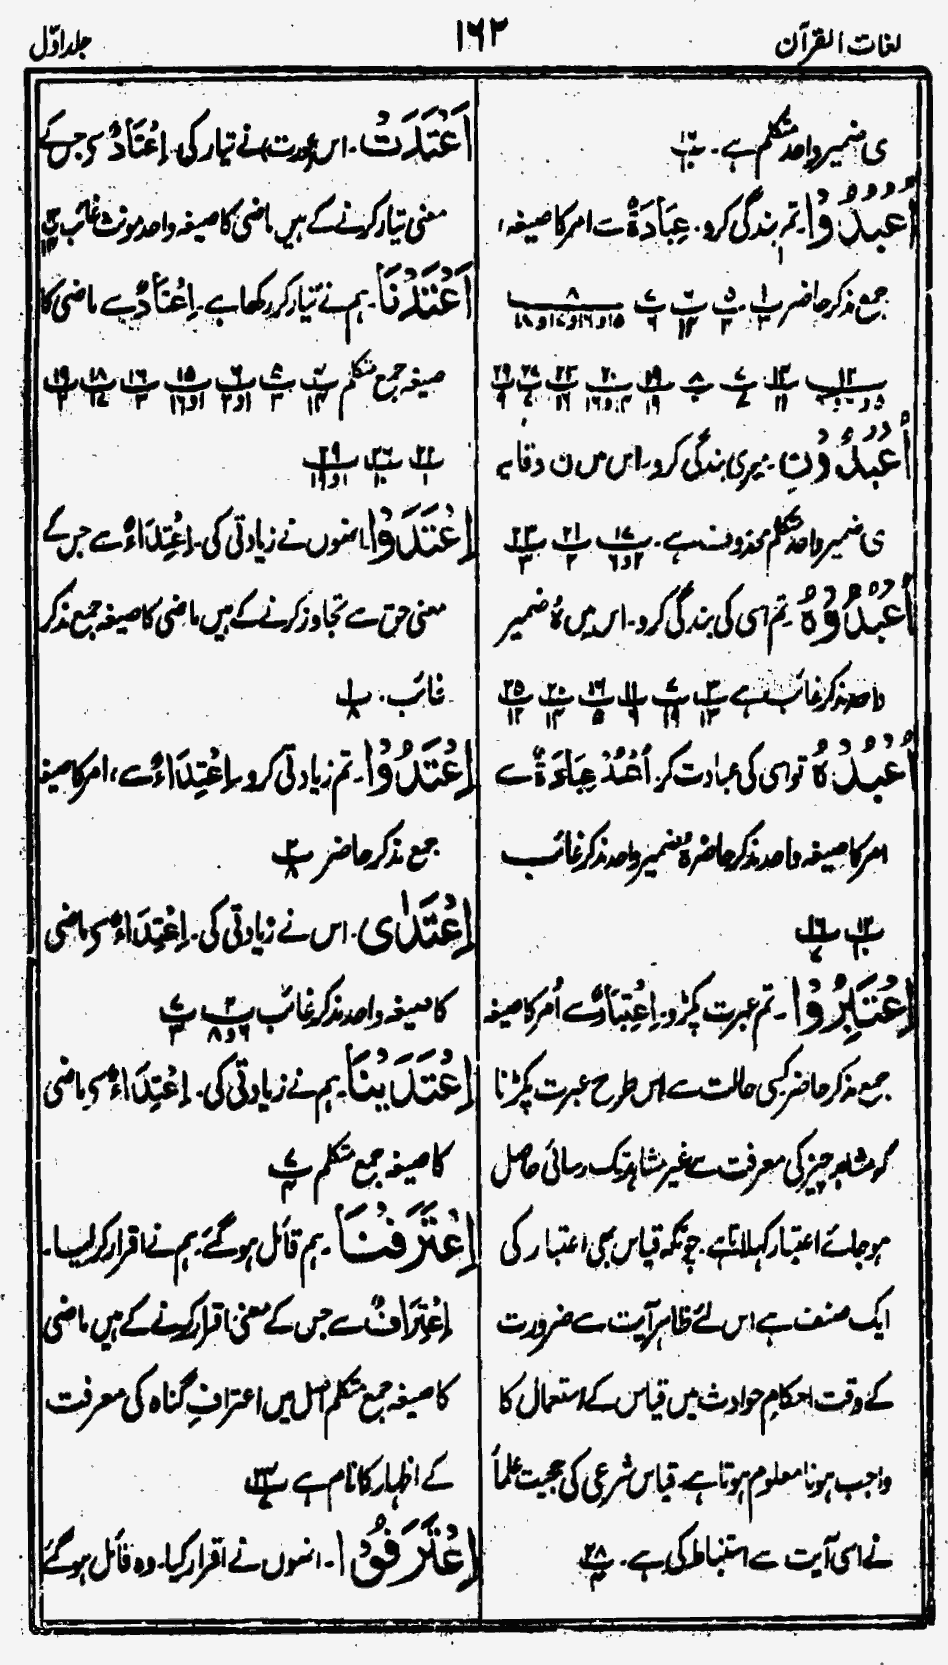 لغات القرآن
۱۶۲
جلد اوّل
ی ضمیر واحد متکلم ہے۔ پ۱۶ ۱۰
اُعْبُدُوْا۔ تم بندگی کرو۔ عِبَادَةٌ سے امر کا صیغہ،
جمع مذکر حاضر پ۱ ۳ پ۵ ۳ پ۶ ۱۴ پ۷ ۶ پ۸ ۱۵ و ۱۶ و ۱۷ و ۱۸
پ۱۲ پ۱۴ ۱۱ پ۷ پ۸ پ۱۹ ۱۹ پ۲۰ پ۲۳ ۱۶ پ۲۷ پ۲۹ ۹
اُعْبُدُوْنِ۔ میری بندگی کرو۔ اس میں ن وقایہ
ی ضمیر واحد متکلم محذوف ہے۔ پ۱۷ ۲ و ۶ پ۲۱ ۲ پ۲۳ ۳
اُعْبُدُوْهُ۔ تم اسی کی بندگی کرو۔ اس میں هُ ضمیر
واحد مذکر غائب ہے پ۳ ۱۳ پ۷ ۱۹ پ۱۱ ۶ پ۱۶ ۵ پ۲۰ ۱۴ پ۲۵ ۱۲
اُعْبُدْهُ تو اسی کی عبادت کر۔ اُعْبُدْ عِبَادَةٌ سے
امر کا صیغہ واحد مذکر حاضر هُ ضمیر واحد مذکر غائب
پ۱۲ ۱۰ پ۱۶ ۷
اِعْتَبِرُوْا۔ تم عبرت پکڑو۔ اِعْتِبَارٌ سے اُمر کا صیغہ
جمع مذکر حاضر کسی حالت سے اس طرح عبرت پکڑنا
کہ مشاہد چیز کی معرفت سے غیر مشاہد تک رسائی حاصل
ہو جائے اعتبار کہلاتا ہے۔ چونکہ قیاس بھی اعتبار کی
ایک صنف ہے اس لئے ظاہر آیت سے ضرورت
کے وقت احکامِ حوادث میں قیاس کے استعمال کا
واجب ہونا معلوم ہوتا ہے۔ قیاس شرعی کی حجیت علماً
نے اسی آیت سے استنباط کی ہے۔ پ۲۸ ۴
اَعْتَدَتْ۔ اس (عورت) نے تیار کی۔ اِعْتَادٌ سے جس کے
معنی تیار کرنے کے ہیں ماضی کا صیغہ واحد مونث غائب
اَعْتَدْنَا۔ ہم نے تیار کر رکھا ہے۔ اِعْتَادٌ سے ماضی کا
صیغہ جمع متکلم پ۴ ۱۴ پ۵ ۳ پ۶ ۱ و ۲ پ۱۵ ۱ و ۱۶ پ۱۶ ۳ پ۱۸ ۱۷ پ۱۹ ۲
پ۲۲ ۱ پ۲۶ ۱۰ پ۲۹ ۱ و ۱۹
اِعْتَدَوْا۔ انہوں نے زیادتی کی۔ اِعْتِدَاءٌ سے جس کے
معنی حق سے تجاوز کرنے کے ہیں ماضی کا صیغہ جمع مذکر
غائب۔ پ۱ ۸
اِعْتَدُوْا۔ تم زیادتی کرو۔ اِعْتِدَاءٌ سے، امر کا صیغہ
جمع مذکر حاضر پ۲ ۸
اِعْتَدٰى۔ اس نے زیادتی کی۔ اِعْتِدَاءٌ سے ماضی
کا صیغہ واحد مذکر غائب پ۲ ۶ و ۸ پ۷ ۳
اِعْتَدَيْنَا۔ ہم نے زیادتی کی۔ اِعْتِدَاءٌ سے ماضی
کا صیغہ جمع متکلم پ۷ ۴
اِعْتَرَفْنَا۔ ہم قائل ہو گئے۔ ہم نے اقرار کر لیا۔
اِعْتِرَافٌ سے جس کے معنی اقرار کرنے کے ہیں ماضی
کا صیغہ جمع متکلم اصل میں اعترافِ گناہ کی معرفت
کے اظہار کا نام ہے پ۲۴ ۷
اِعْتَرَفُوْا۔ انہوں نے اقرار کیا۔ وہ قائل ہو گئے